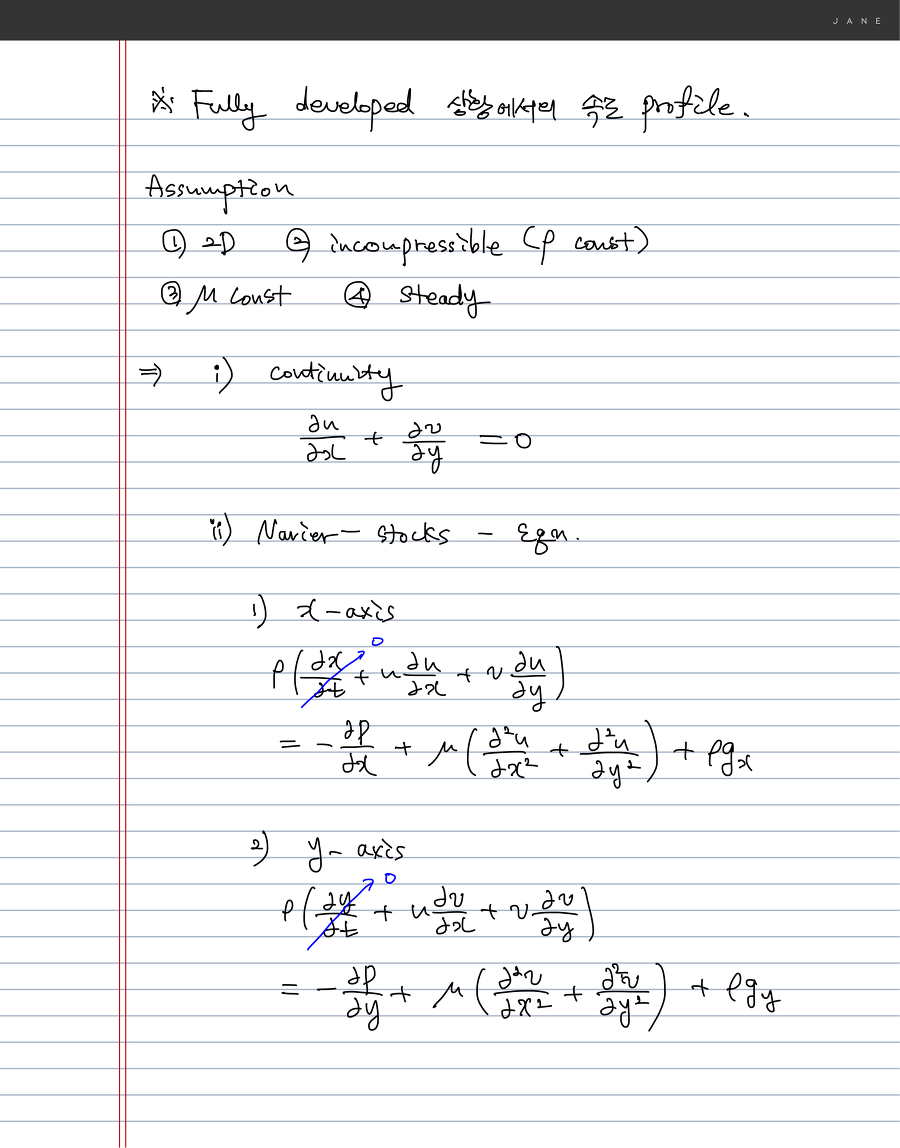 JANE
※ Fully developed 상황에서의 속도 profile.
Assumption
① 2D ② incompressible (ρ const)
③ μ const ④ steady
⇒ i) continuity
∂u/∂x + ∂v/∂y = 0
ii) Navier - stocks - Eqn.
1) x-axis
0
ρ(∂x/∂t + u ∂u/∂x + v ∂u/∂y)
= - ∂P/∂x + μ(∂²u/∂x² + ∂²u/∂y²) + ρgx
2) y- axis
0
ρ(∂y/∂t + u ∂v/∂x + v ∂v/∂y)
= - ∂P/∂y + μ(∂²v/∂x² + ∂²v/∂y²) + ρgy